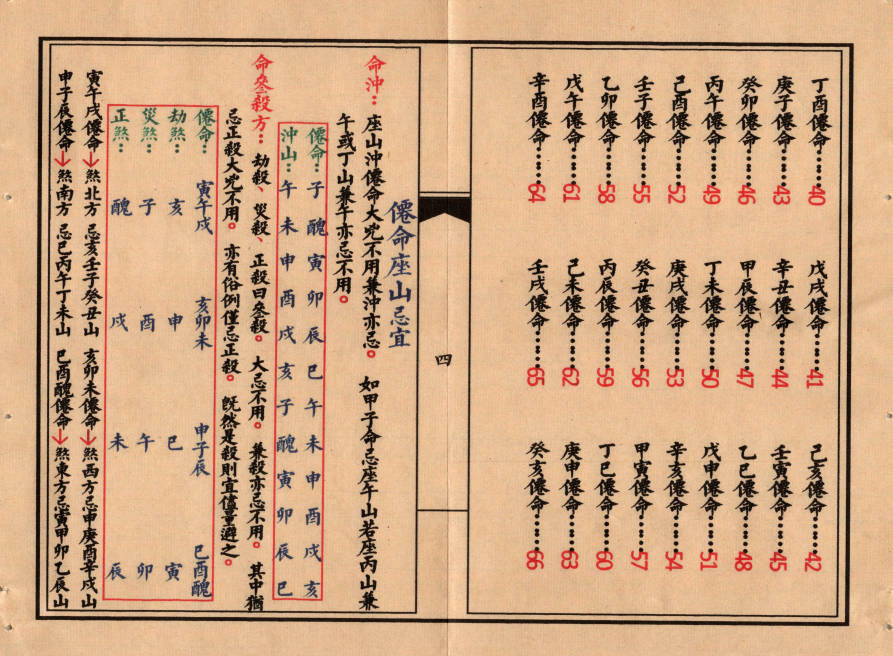 丁酉僊命……40 戊戌僊命……41 己亥僊命……42
庚子僊命……43 辛丑僊命……44 壬寅僊命……45
癸卯僊命……46 甲辰僊命……47 乙巳僊命……48
丙午僊命……49 丁未僊命……50 戊申僊命……51
己酉僊命……52 庚戌僊命……53 辛亥僊命……54
壬子僊命……55 癸丑僊命……56 甲寅僊命……57
乙卯僊命……58 丙辰僊命……59 丁巳僊命……60
戊午僊命……61 己未僊命……62 庚申僊命……63
辛酉僊命……64 壬戌僊命……65 癸亥僊命……66
四
僊命座山忌宜
命沖：座山沖僊命大兇不用兼沖亦忌。如甲子命忌座午山若座丙山兼
午或丁山兼午亦忌不用。
僊命：子醜寅卯辰巳午未申酉戌亥
沖山：午未申酉戌亥子醜寅卯辰巳
命叄殺方：劫殺、災殺、正殺曰叄殺。大忌不用。兼殺亦忌不用。其中猶
忌正殺大兇不用。亦有俗例僅忌正殺。既然是殺則宜儘量避之。
僊命：寅午戌 亥卯未 申子辰 巳酉醜
劫煞：亥 申 巳 寅
災煞：子 酉 午 卯
正煞：醜 戌 未 辰
寅午戌僊命→煞北方忌亥壬子癸丑山 亥卯未僊命→煞西方忌申庚酉辛戌山
申子辰僊命→煞南方忌巳丙午丁未山 巳酉醜僊命→煞東方忌寅甲卯乙辰山